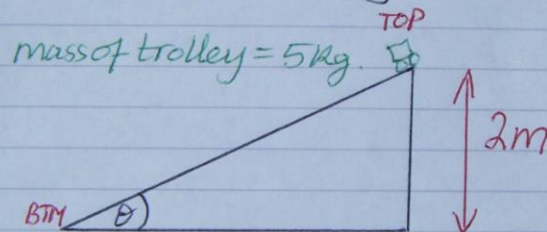 TOP
mass of trolley = 5kg.
2m
BTM θ